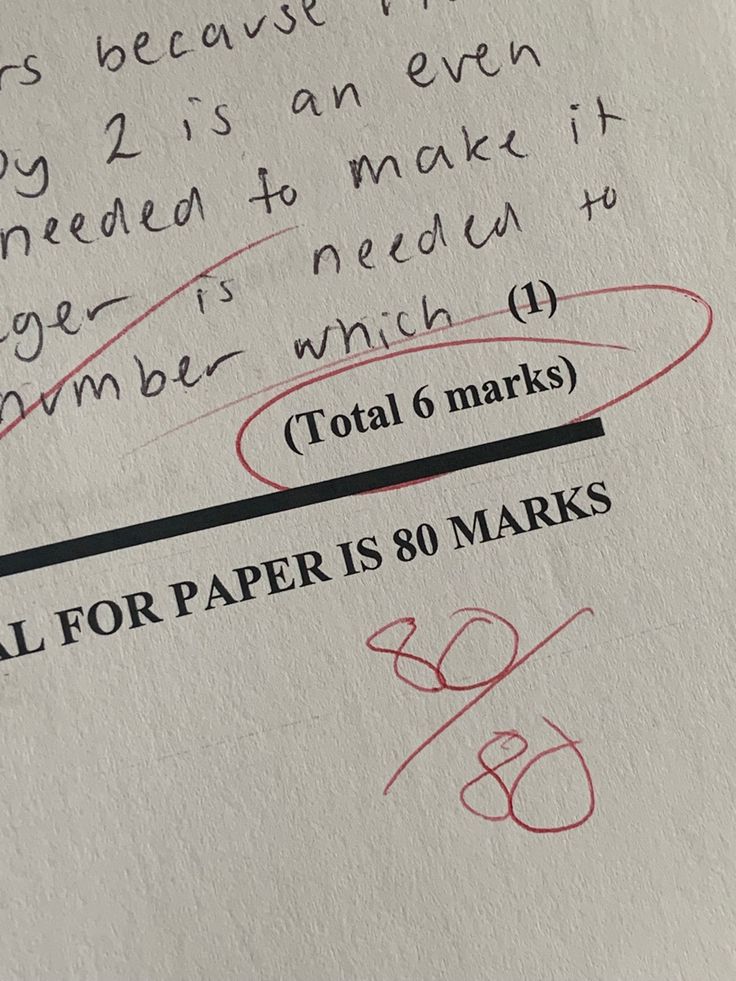 because
by 2 is an even
needed to make it
is needed to
number which (1)
(Total 6 marks)
FOR PAPER IS 80 MARKS
80/80